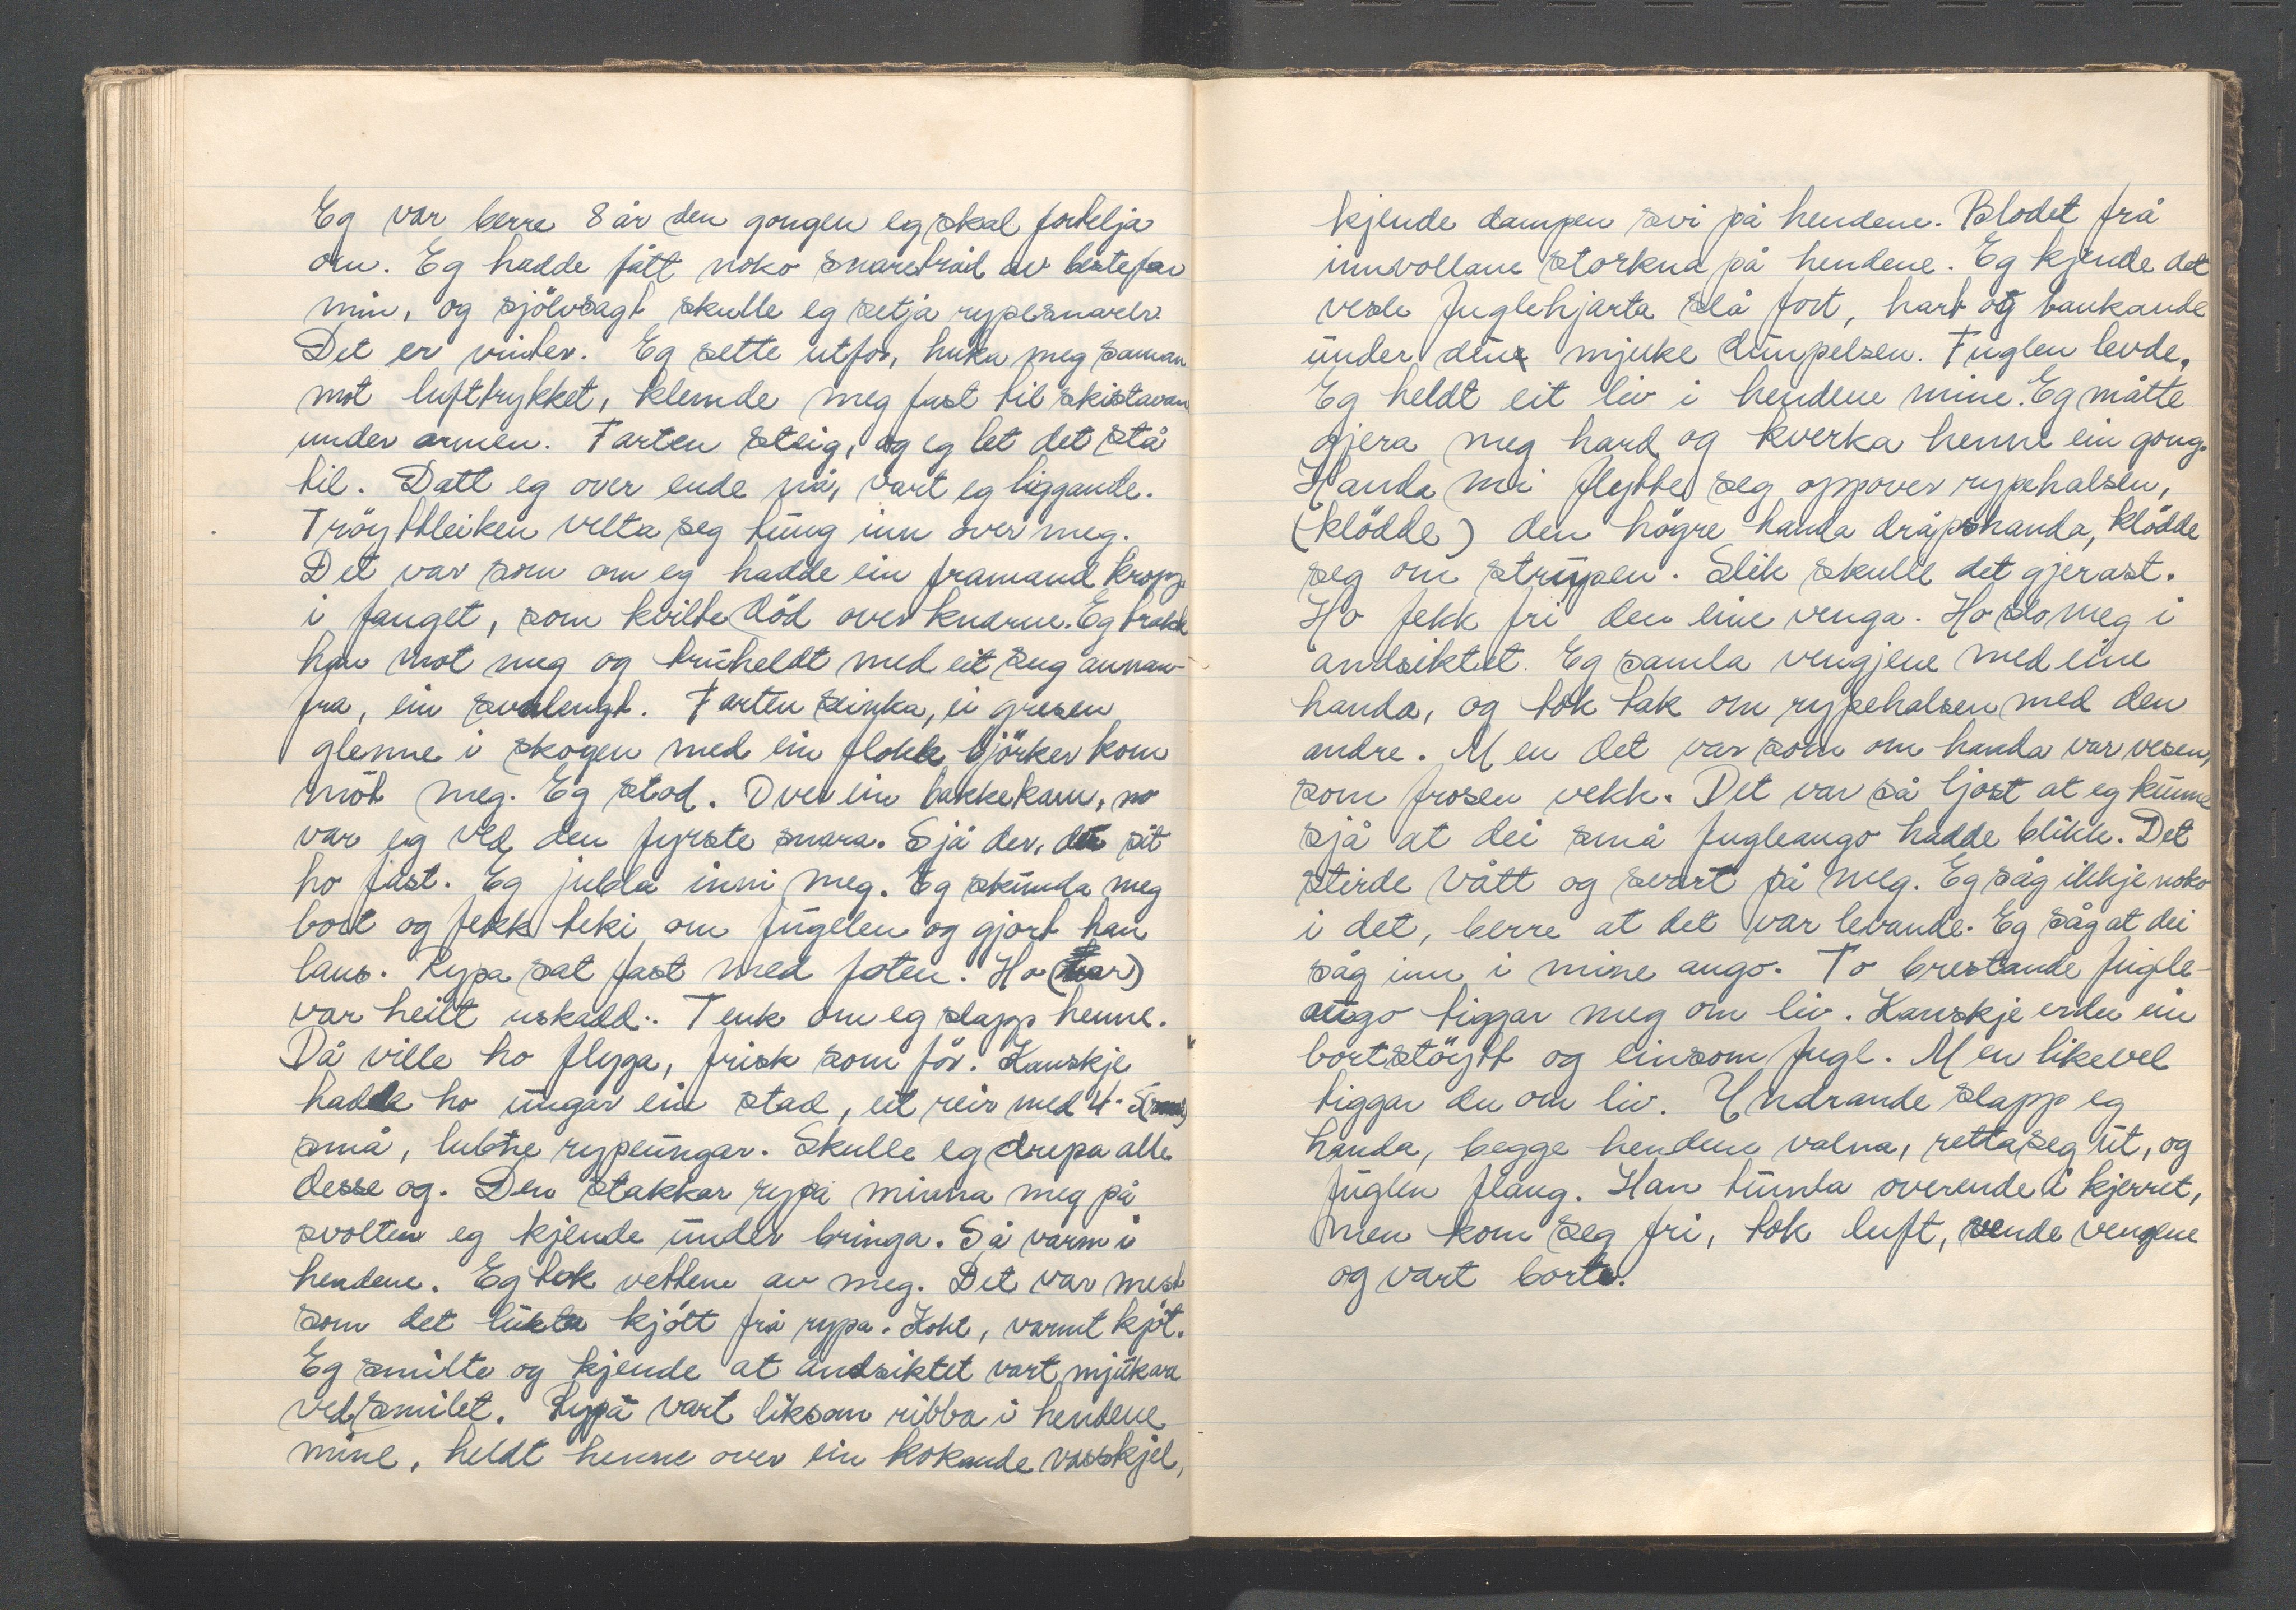 Eg var berre 8 år den gongen eg skal fortelja
om. Eg hadde fått noko snaretråd av bestefar
min, og sjölvsagt skulle eg setja rypesnarer.
Det er vinter. Eg sette utfor, huka meg saman
mot lufttrykket, klemde meg fast til skistavan
under armen. Farten steig, og eg let det stå
til. Datt eg over ende nå, vart eg liggande.
Tröyttleiken velta seg tung inn over meg.
Det var som om eg hadde ein framand kropp
i fanget, som kvilte död over knærne. Eg trakk
han mot meg og heldt med eit sug annan-
fra, ein svolengt. Farten seinka, ei grasen
glenne i skogen med ein flokk björker kom
möt meg. Eg stod. Over ein bakkekam, no
var eg ved den fyrste snara. Sjå der, der sit
ho fast. Eg jubla inni meg. Eg skunda meg
bort og fekk teki om fugelen og gjort han
laus. Rypa sat fast med foten. Ho (var)
var heilt uskadd. Tenk om eg slapp henne.
Då ville ho flyga, frisk som för. Kanskje
hadde ho ungar ein stad, eit reir med 4-5
små, lubne rypeungar. Skulle eg drepa alle
desse og. Den stakkar rypa minna meg på
svolten eg kjende under bringa. Så varm i
hendene. Eg tok vettene av meg. Det var mest
som det lukta kjött frå rypa. Kokt, varmt kjöt.
Eg smilte og kjende at andsiktet vart mjukare
ved smilet. Rypa vart liksom ribba i hendene
mine, heldt henne over ein kokande vasskjel,
kjende dampen svi på hendene. Blodet frå
innvollane storkna på hendene. Eg kjende det
vesle fuglehjarta slå fort, hart og bankande
under den mjuke dunpelsen. Fuglen levde.
Eg heldt eit liv i hendene mine. Eg måtte
gjera meg hard og kverka henne ein gong.
Handa mi flytte seg oppover rypehalsen,
(klödde) den högre handa dråpshanda, klödde
seg om strupen. Slik skulle det gjerast.
Ho fekk fri den eine venga. Ho slo meg i
andsiktet. Eg samla vengjene med eine
handa, og tok tak om rypehalsen med den
andre. Men det var som om handa var vesen,
som frosen vekk. Det var så ljost at eg kunne
sjå at dei små fugleaugo hadde blikk. Det
stirde vått og svart på meg. Eg såg ikkje noko
i det, berre at det var levande. Eg såg at dei
såg inn i mine augo. To brestande fugle-
augo tiggar meg om liv. Kanskje er du ein
bortstöytt og einsom fugl. Men likevel
tiggar du om liv. Undrande slapp eg
handa, begge hendene valna, retta seg ut, og
fuglen flaug. Han tumla overende i kjerret,
men kom seg fri, tok luft, vende vengene
og vart borte.